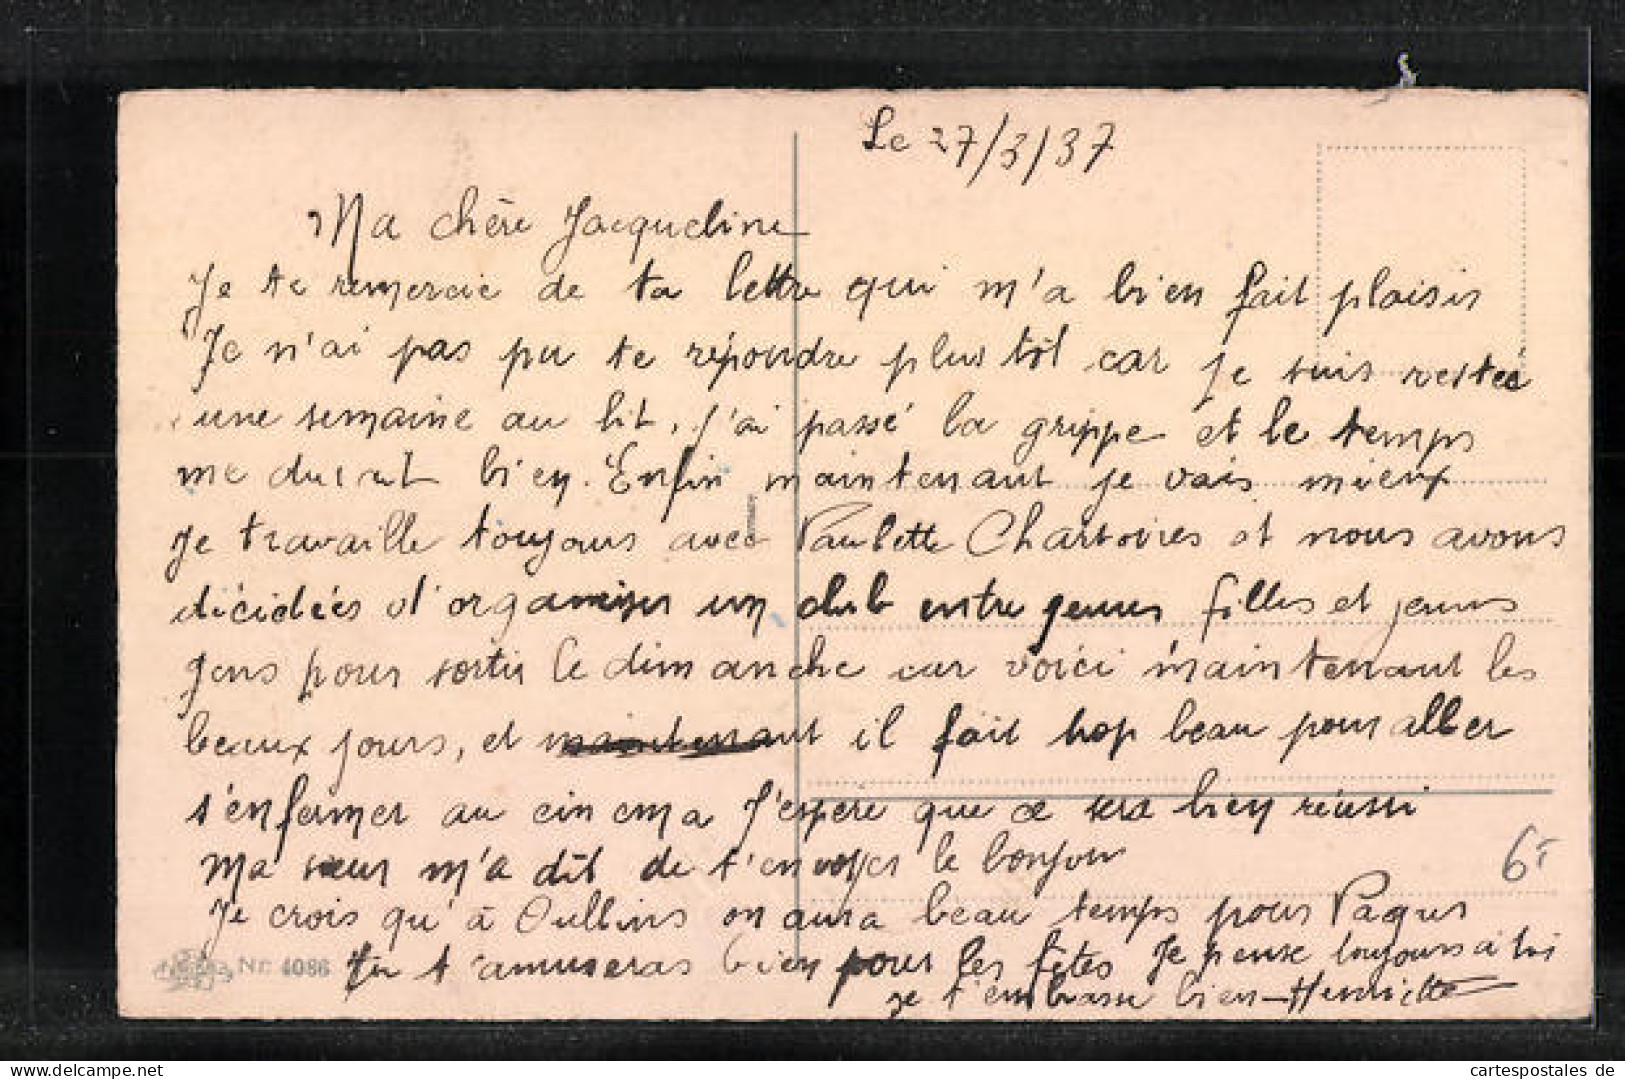 Le 27/3/37
Ma chère Jacqueline
Je te remercie de ta lettre qui m'a bien fait plaisir
Je n'ai pas pu te répondre plus tôt car je suis restée
une semaine au lit, j'ai passé la grippe et le temps
me durait bien. Enfin maintenant je vais mieux
Je travaille toujours avec Paulette Chartoires et nous avons
décidées d'organiser un club entre jeunes filles et jeunes
gens pour sortir le dimanche car voici maintenant les
beaux jours, et maintenant il fait trop beau pour aller
s'enfermer au cinéma J'espère que ce sera bien réussi
Ma sœur m'a dit de t'envoyer le bonjour
Je crois qu'à Oullins on aura beau temps pour Paques
Tu t'amuseras bien pour les fêtes Je pense toujours à toi
Je t'embrasse bien — Henriette
Nr. 4086
cartespostales de